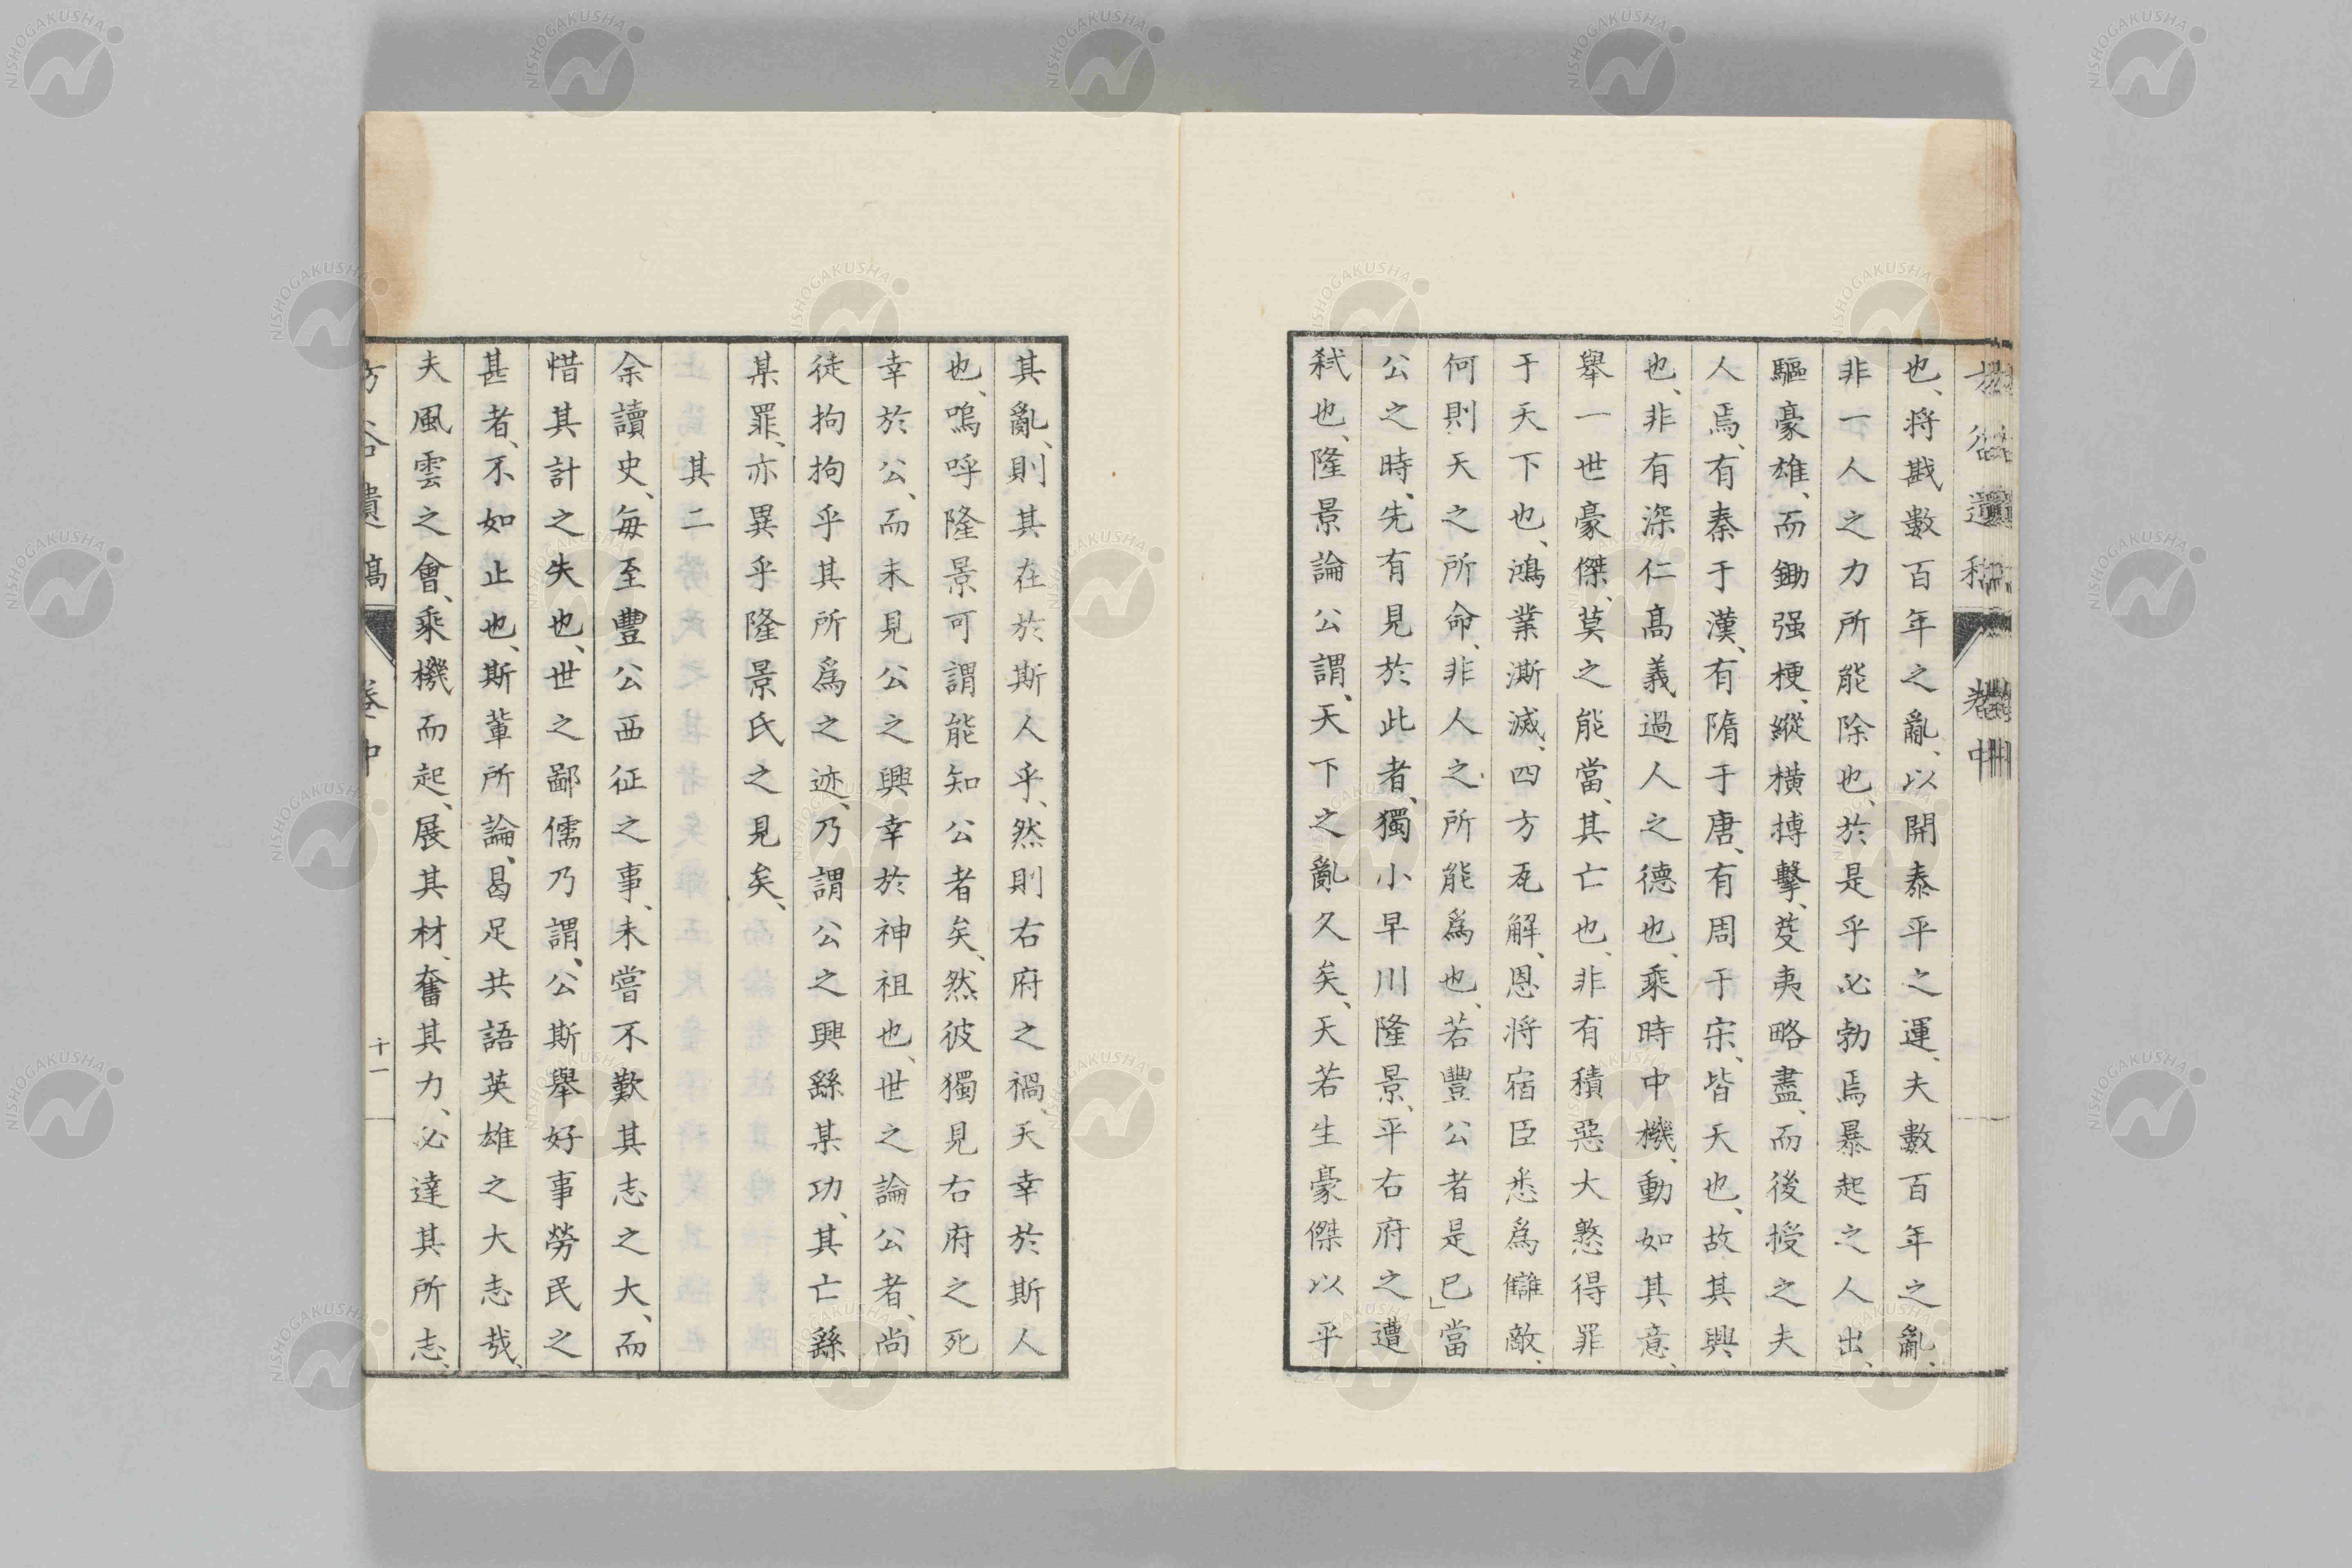 也、將戡數百年之亂、以開泰平之運、夫數百年之亂、
非一人之力所能除也、於是乎必勃焉暴起之人出、
驅豪雄、而鋤强梗、縱橫搏擊、芟夷略盡、而後授之夫
人焉、有秦于漢、有隋于唐、有周于宋、皆天也、故其興
也、非有深仁高義過人之德也、乘時中機、動如其意、
舉一世豪傑、莫之能當、其亡也、非有積惡大憝得罪
于天下也、鴻業澌滅、四方瓦解、恩將宿臣悉爲讎敵、
何則天之所命、非人之所能爲也、若豐公者是已」當
公之時、先有見於此者、獨小早川隆景、平右府之遭
弒也、隆景論公謂、天下之亂久矣、天若生豪傑以平
其亂、則其在於斯人乎、然則右府之禍、天幸於斯人
也、嗚呼隆景可謂能知公者矣、然彼獨見右府之死
幸於公、而未見公之興幸於神祖也、世之論公者、尚
徒拘拘乎其所爲之迹、乃謂公之興繇某功、其亡繇
某罪、亦異乎隆景氏之見矣、
其二
余讀史、每至豐公西征之事、未嘗不歎其志之大、而
惜其計之失也、世之鄙儒乃謂、公斯舉好事勞民之
甚者、不如止也、斯輩所論、曷足共語英雄之大志哉、
夫風雲之會、乘機而起、展其材、奮其力、必達其所志、
遺稿 卷中 十一